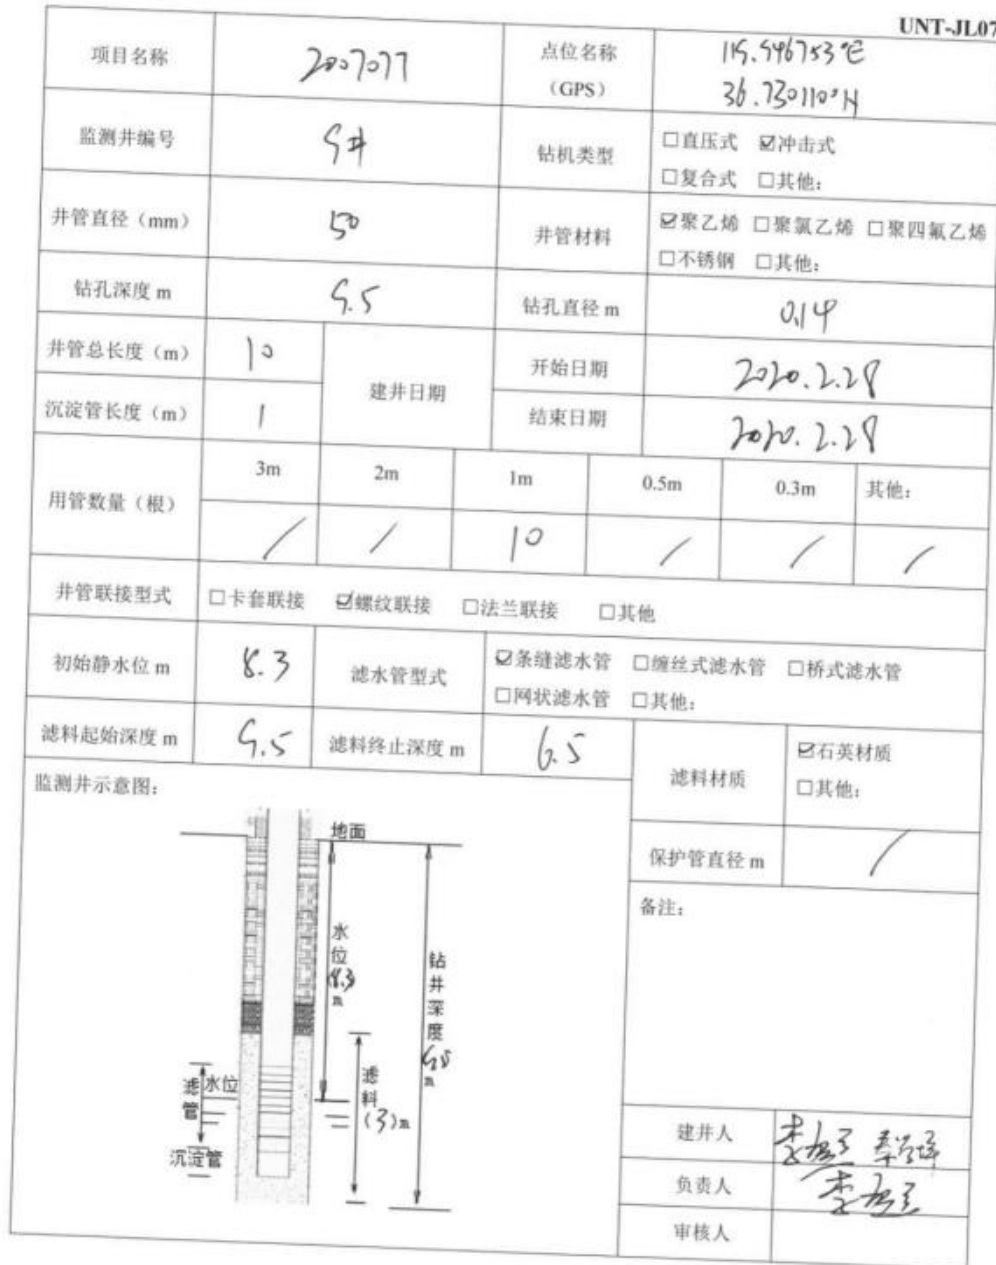 UNT-JL07
项目名称 2007077 点位名称（GPS） 115.946753°E
36.730110°N
监测井编号 9# 钻机类型 □直压式 ☑冲击式
□复合式 □其他：
井管直径（mm） 50 井管材料 ☑聚乙烯 □聚氯乙烯 □聚四氟乙烯
□不锈钢 □其他：
钻孔深度 m 9.5 钻孔直径 m 0.14
井管总长度（m） 10 建井日期 开始日期 2020.2.28
沉淀管长度（m） 1 结束日期 2020.2.28
用管数量（根） 3m 2m 1m 0.5m 0.3m 其他：
/ / 10 / / /
井管联接型式 □卡套联接 ☑螺纹联接 □法兰联接 □其他
初始静水位 m 8.3 滤水管型式 ☑条缝滤水管 □缠丝式滤水管 □桥式滤水管
□网状滤水管 □其他：
滤料起始深度 m 9.5 滤料终止深度 m 6.5 滤料材质 ☑石英材质
□其他：
监测井示意图：
保护管直径 m /
备注：
地面
水位 8.3 m
钻井深度 9.5 m
滤管
水位
滤料 (3) m
沉淀管
建井人
负责人
审核人